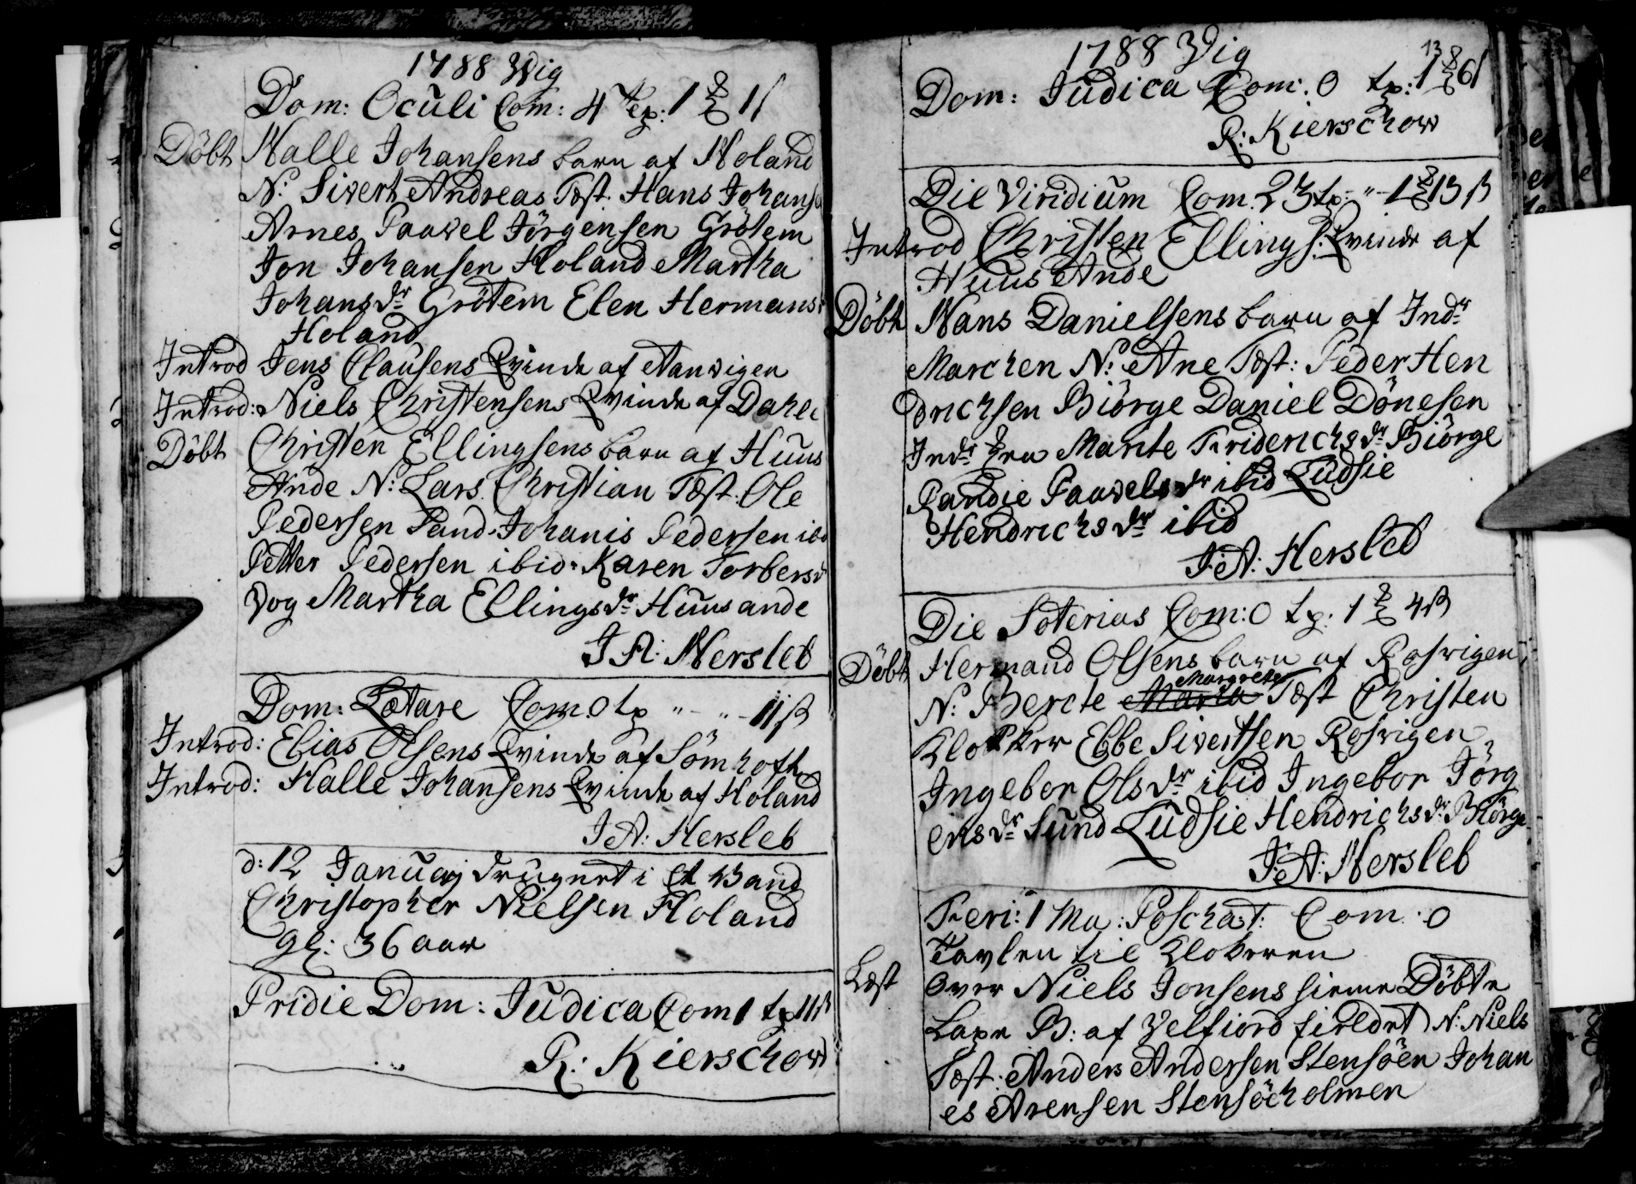 1788 Wig
Dom: Oculi Com: 4 Exp: 1 1 ß
Döbt Halle Johansens barn af Holand
N: Sivert Andreas Tæst: Hans Johans
Arnes, Paavel Jörgensen Grötem
Jon Johansen Holand Martha
Johansdr Grötem Elen Hermans
Holand
Introd Jens Clausens Qvinde af Aanvigen
Introd: Niels Christensens Qvinde af Dahle
Döbt Christen Ellingsens barn af Huus
Ande N: Lars Christian Tæst: Ole
Pedersen Sand Johanis Pedersen ibd
Petter Pedersen ibid Karen Torbersd
og Martha Ellingsdr Huusande
J A: Hersleb
Dom: Lætare Com: 0 Exp " - " - 11 ß
Introd: Elias Olsens Qvinde af Sömhofth
Introd: Halle Johansens Qvinde af Holand
J A: Hersleb
d: 12 January drugnet i et Vand
Christopher Nielsen Holand
gl: 36 aar
Pridie Dom: Judica Com 1 Exp 11 ß
R: Kierschow
13
1788 Wig
Dom: Judica Com: 0 Exp: 1 6 ß
R: Kierschow
Die Viridium Com: 23 Exp: " - 1 13 ß
Introd Christen Ellings: Qvinde af
Huus Ande
Döbt Hans Danielsens barn af Indr
Marchen N: Ane Tæst: Peder Hen
drichsen Biörge Daniel Dönesen
Indr Marite Friderichsdr Biörge
Randie Paavelsdr ibid Ludsie
Hendrichsdr ibid
J: A: Hersleb
Die Soterias Com: 0 Exp: 1 4 ß
Döbt Hermand Olsens barn af Rosvigen
Margrete
N: Berete Maria Tæst Christen
Klokker Ebbe Sivertsen Rosvigen
Ingebor Olsdr ibid Ingebor Jörg
ensdr Sund Ludsie Hendrichsdr Biörge
J: A: Hersleb
Feri: 1 Ma: Poschat: Com: 0
Tavlen til Klokeren
Læst Over Niels Jonsens hieme Döbte
Lape B: af Velfiord N: Niels
Tæst: Anders Andersen Stensöen Johan
es Arensen Stensöeholmen